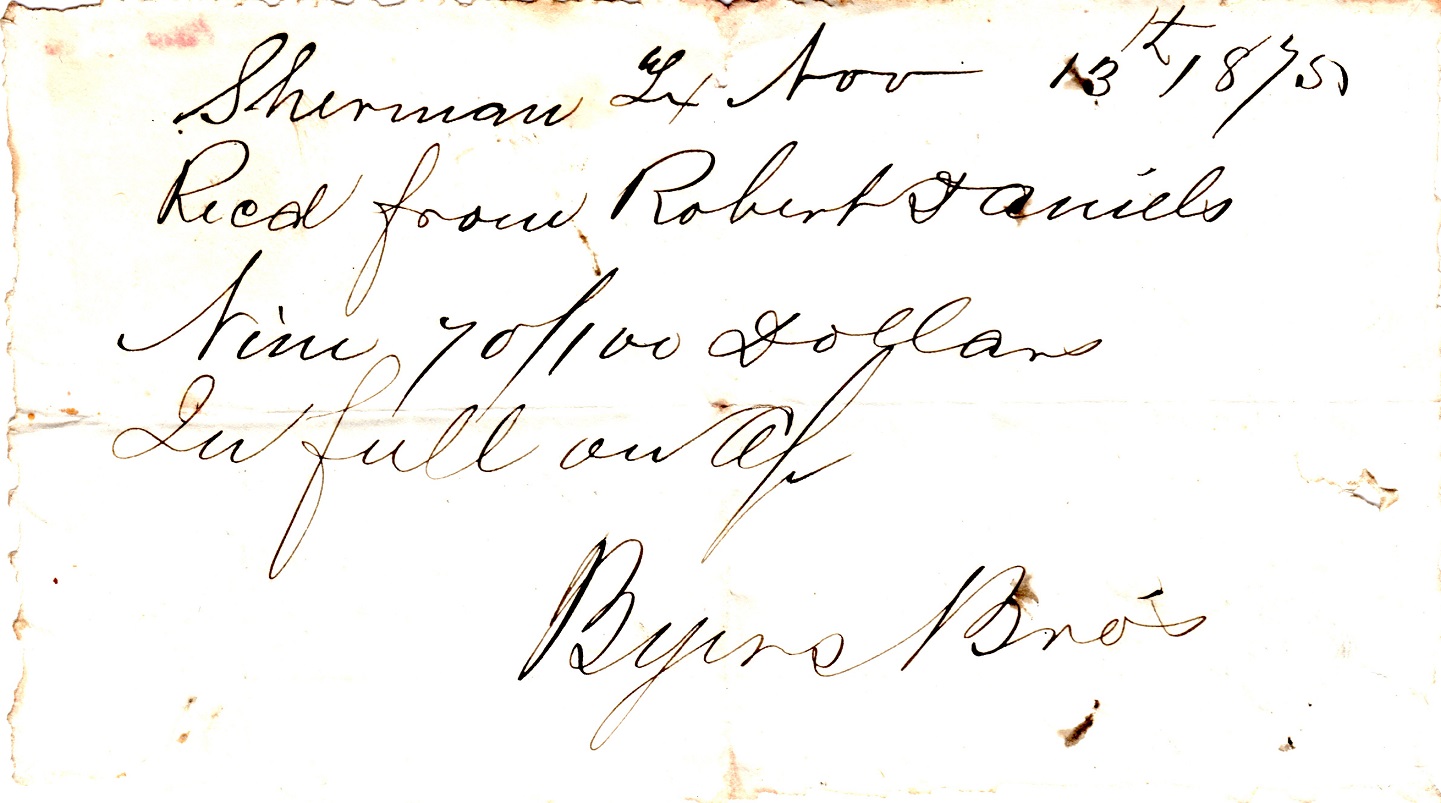 Sherman Tx Nov 13th 1875
Recd from Robert Daniels
Nine 70/100 Dollars
In full on a/c
Byers Bro's